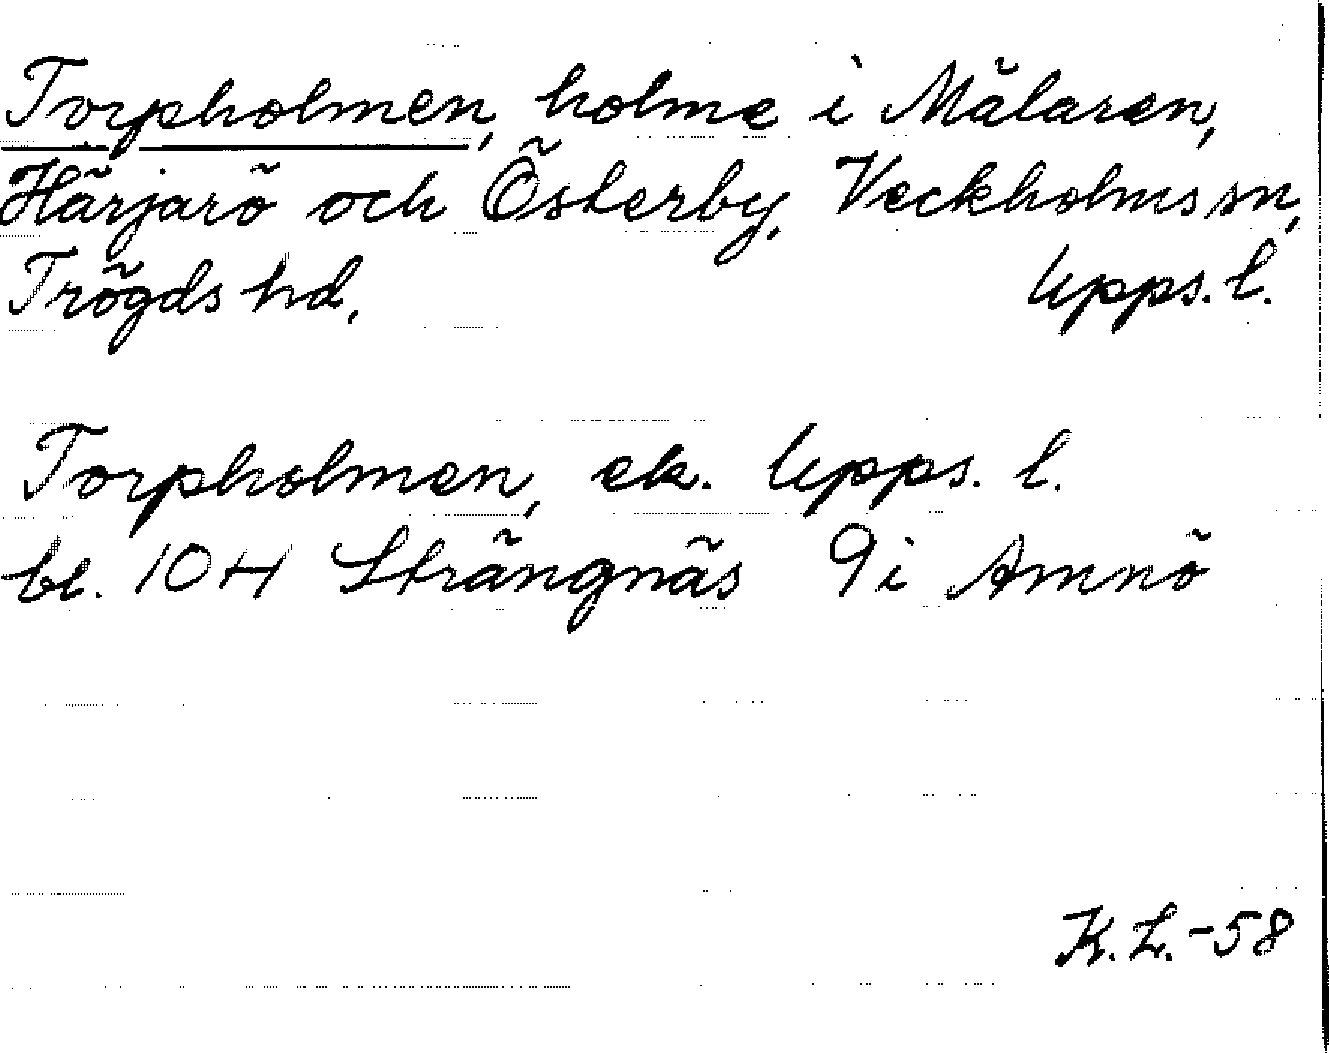 Torpholmen, holme i Mälaren,
Härjarö och Österby, Veckholms sn,
Trögds hd. Upps. l.
Torpholmen, ek. Upps. l.
bl. 10 H Strängnäs 9i Amnö
K.L.-58